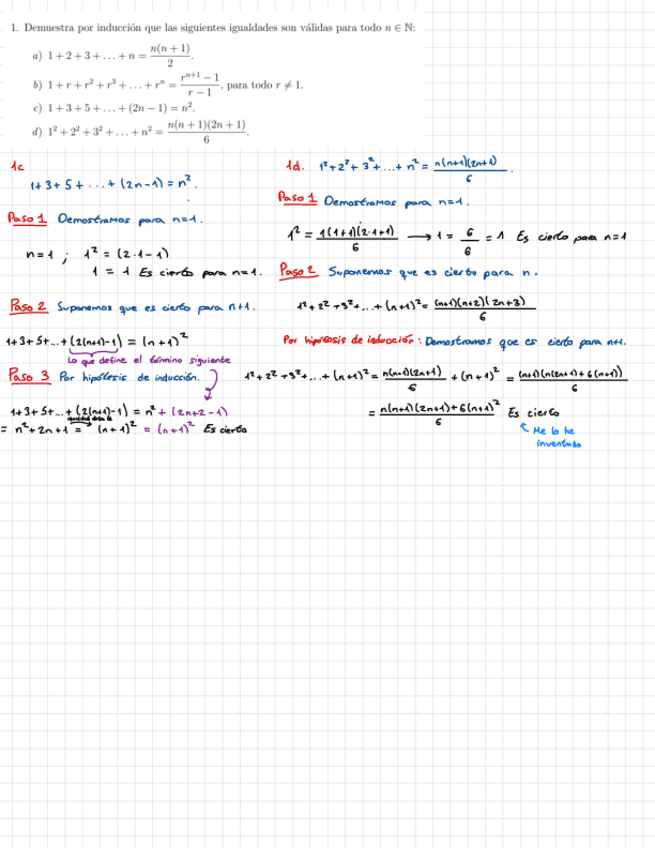 1. Demuestra por inducción que las siguientes igualdades son válidas para todo n ∈ ℕ:
a) 1 + 2 + 3 + … + n = n(n + 1)/2.
b) 1 + r + r² + r³ + … + rⁿ = (rⁿ⁺¹ − 1)/(r − 1), para todo r ≠ 1.
c) 1 + 3 + 5 + … + (2n − 1) = n².
d) 1² + 2² + 3² + … + n² = n(n + 1)(2n + 1)/6.
1c
1+3+5+...+(2n-1) = n².
Paso 1 Demostramos para n=1.
n=1 ; 1² = (2·1-1)
1 = 1 Es cierto para n=1.
Paso 2 Suponemos que es cierto para n+1.
1+3+5+...+(2(n+1)-1) = (n+1)²
Lo que define el término siguiente
Paso 3 Por hipótesis de inducción.
1+3+5+...+(2(n+1)-1) = n² + (2n+2-1)
= n²+2n+1 = (n+1)² = (n+1)² Es cierto
1d. 1²+2²+3²+...+n² = n(n+1)(2n+1)/6.
Paso 1 Demostramos para n=1.
1² = 1(1+1)(2·1+1)/6 → 1 = 6/6 = 1 Es cierto para n=1
Paso 2 Suponemos que es cierto para n.
1²+2²+3²+...+(n+1)² = (n+1)(n+2)(2n+3)/6
Por hipótesis de inducción: Demostramos que es cierto para n+1.
1²+2²+3²+...+(n+1)² = n(n+1)(2n+1)/6 + (n+1)² = (n+1)(n(2n+1)+6(n+1))/6
= n(n+1)(2n+1)+6(n+1)²/6 Es cierto
Me lo he
inventado